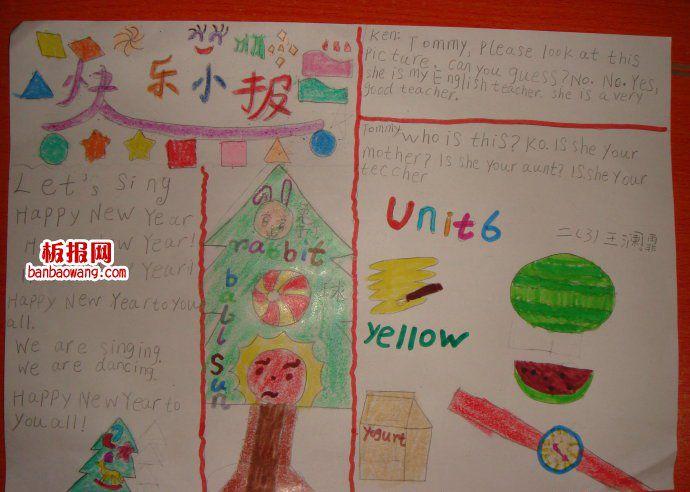 快乐小报
Ken: Tommy, Please look at this
Picture. can you guess? No. No. Yes,
she is my English teacher. she is a very
good teacher.
Tommy who is this? Ko. Is she your
mother? Is she your aunt? Is she your
teccher
Let's Sing
Happy New Year
Happy New Year!
Happy New Year!
Happy New Year to you
all.
We are singing
we are dancing.
Happy New Year to
you all!
板报网
banbaowang.com
rabbit
ball
球
Sun
Unit6
二(3)王澜霏
yellow
Yogurt